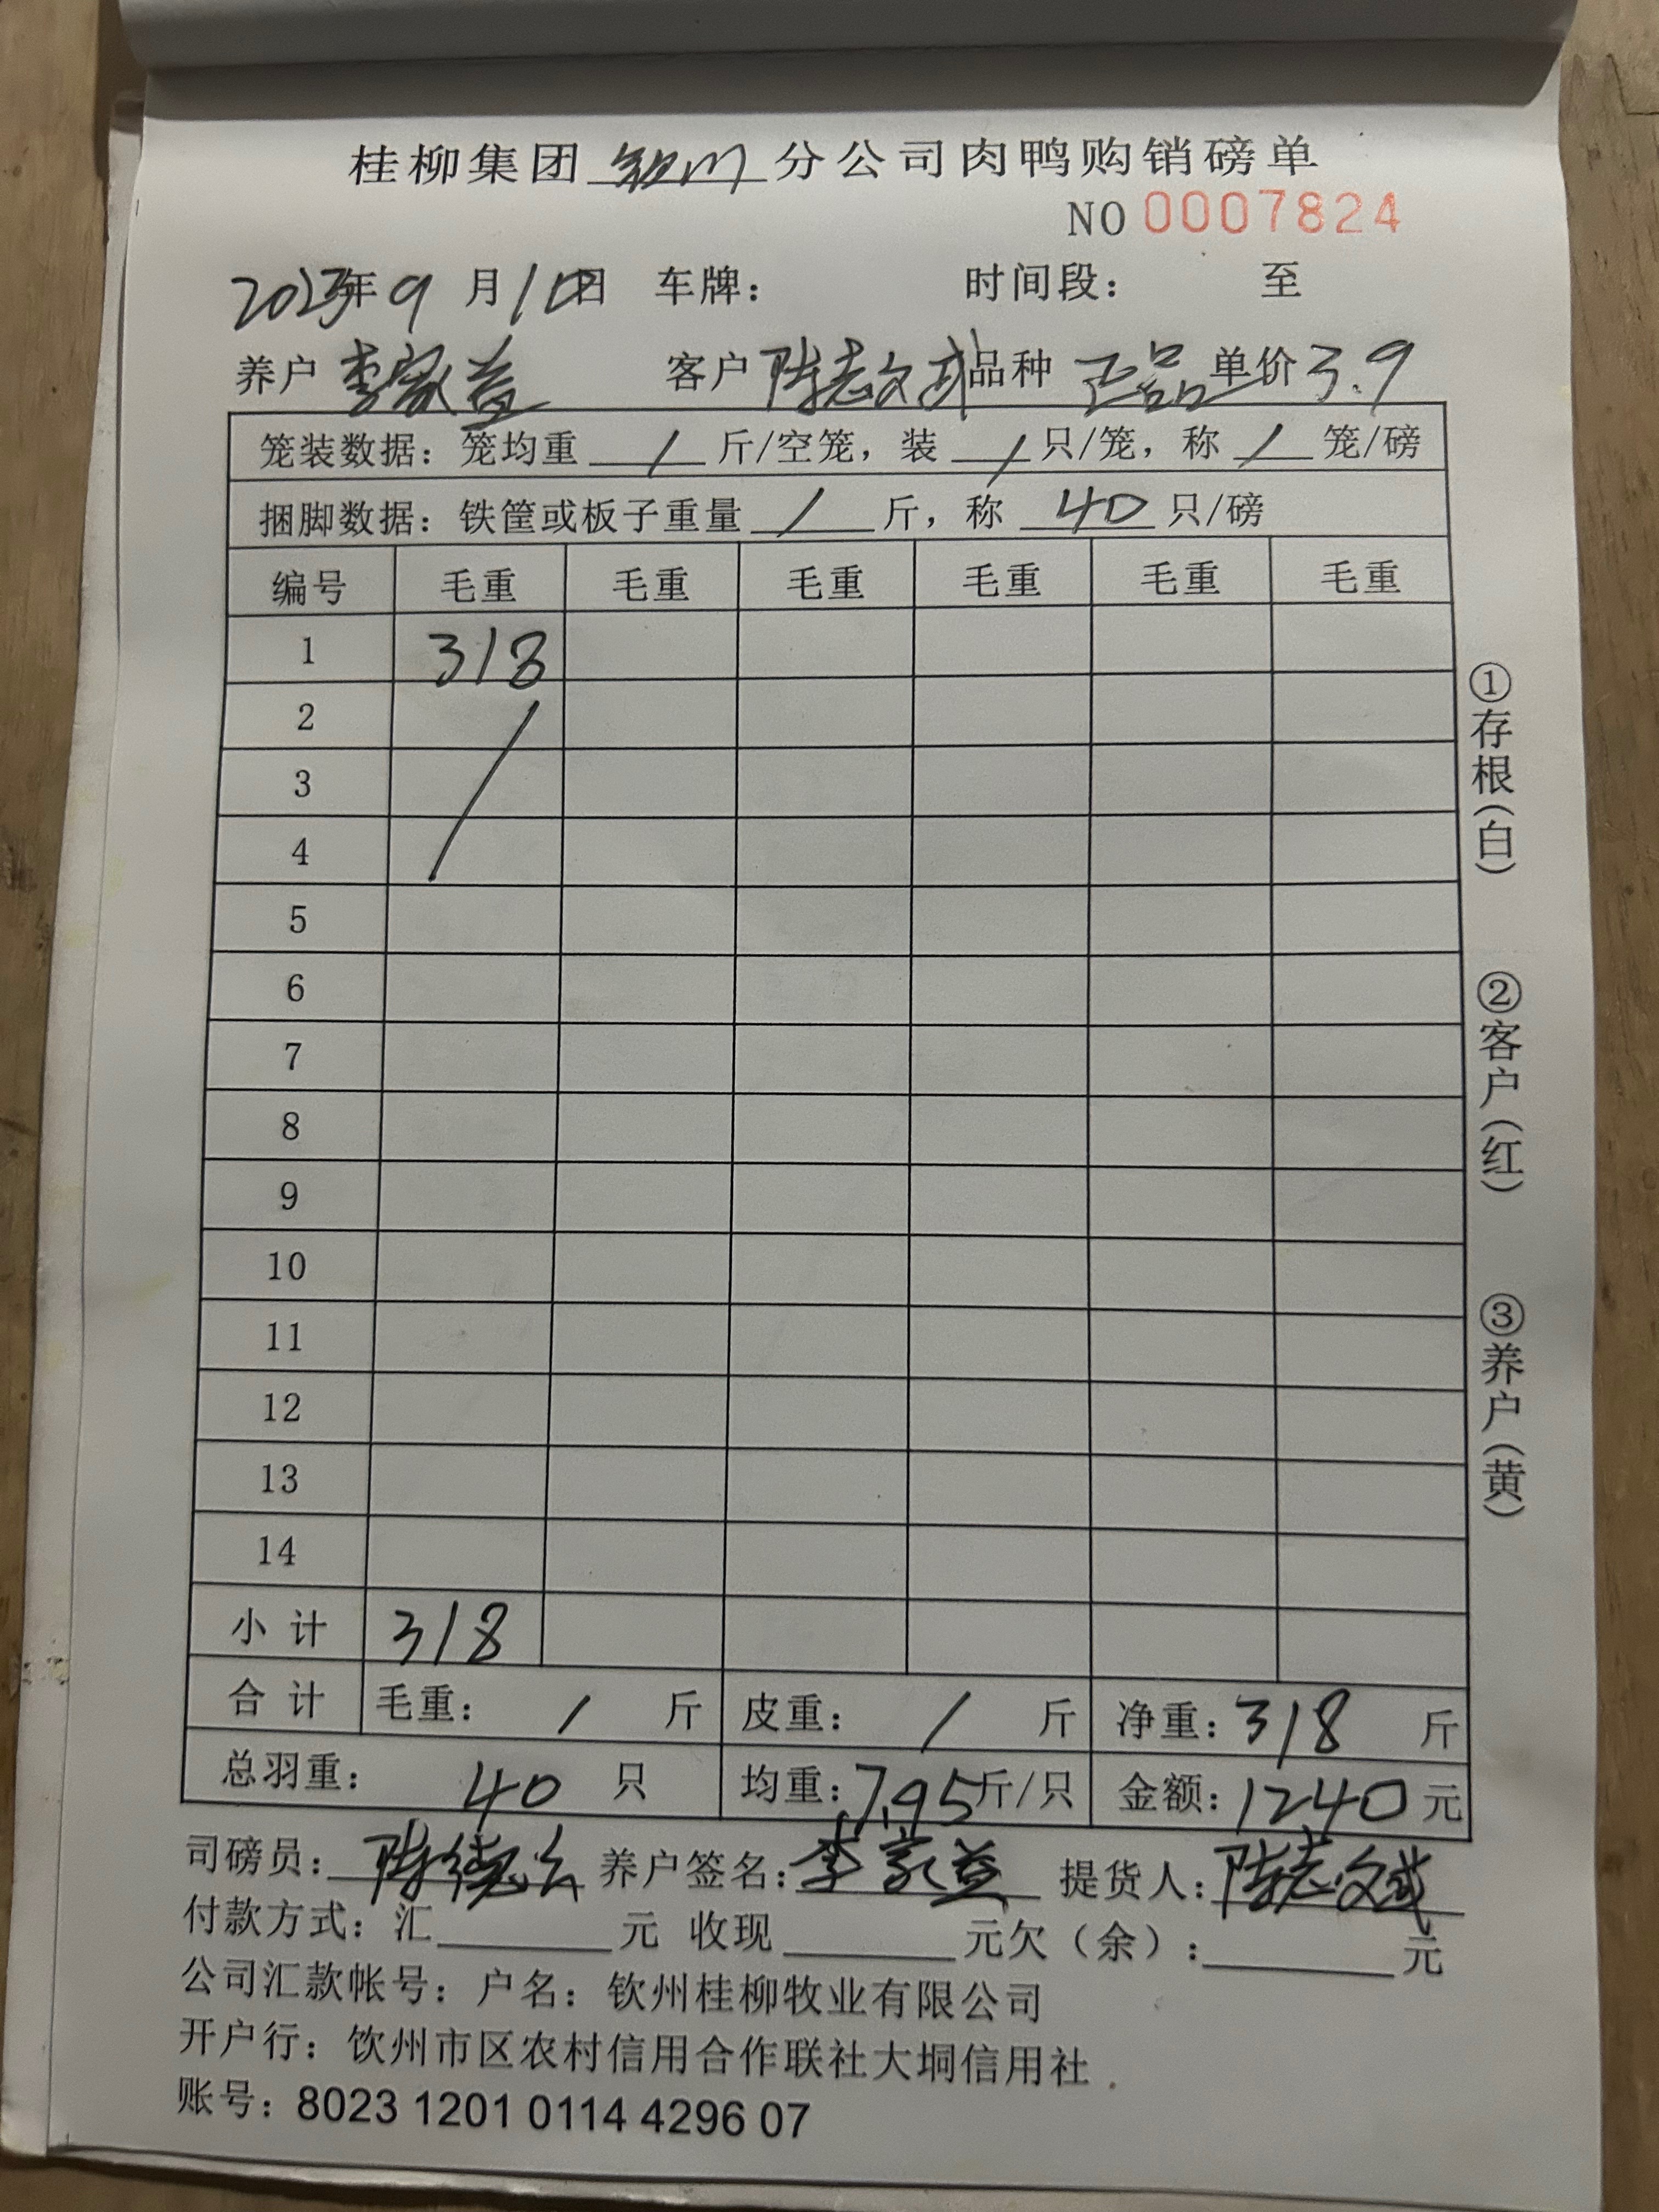 桂柳集团 钦州 分公司肉鸭购销磅单
NO 0007824
2025年9月10日 车牌： 时间段： 至
养户 李家益 客户 陈志斌 品种 正品 单价 3.9
笼装数据：笼均重 / 斤/空笼，装 / 只/笼，称 / 笼/磅
捆脚数据：铁筐或板子重量 / 斤，称 40 只/磅
编号 毛重 毛重 毛重 毛重 毛重 毛重
1 318
2
3
4
5
6
7
8
9
10
11
12
13
14
小计 318
合计 毛重： / 斤 皮重： / 斤 净重：318 斤
总羽重： 40 只 均重：7.95斤/只 金额：1240元
司磅员： 陈德 养户签名：李家益 提货人：陈志斌
付款方式：汇 元 收现 元欠（余）： 元
公司汇款帐号：户名：钦州桂柳牧业有限公司
开户行：钦州市区农村信用合作联社大垌信用社
账号：8023 1201 0114 4296 07
①存根（白）
②客户（红）
③养户（黄）